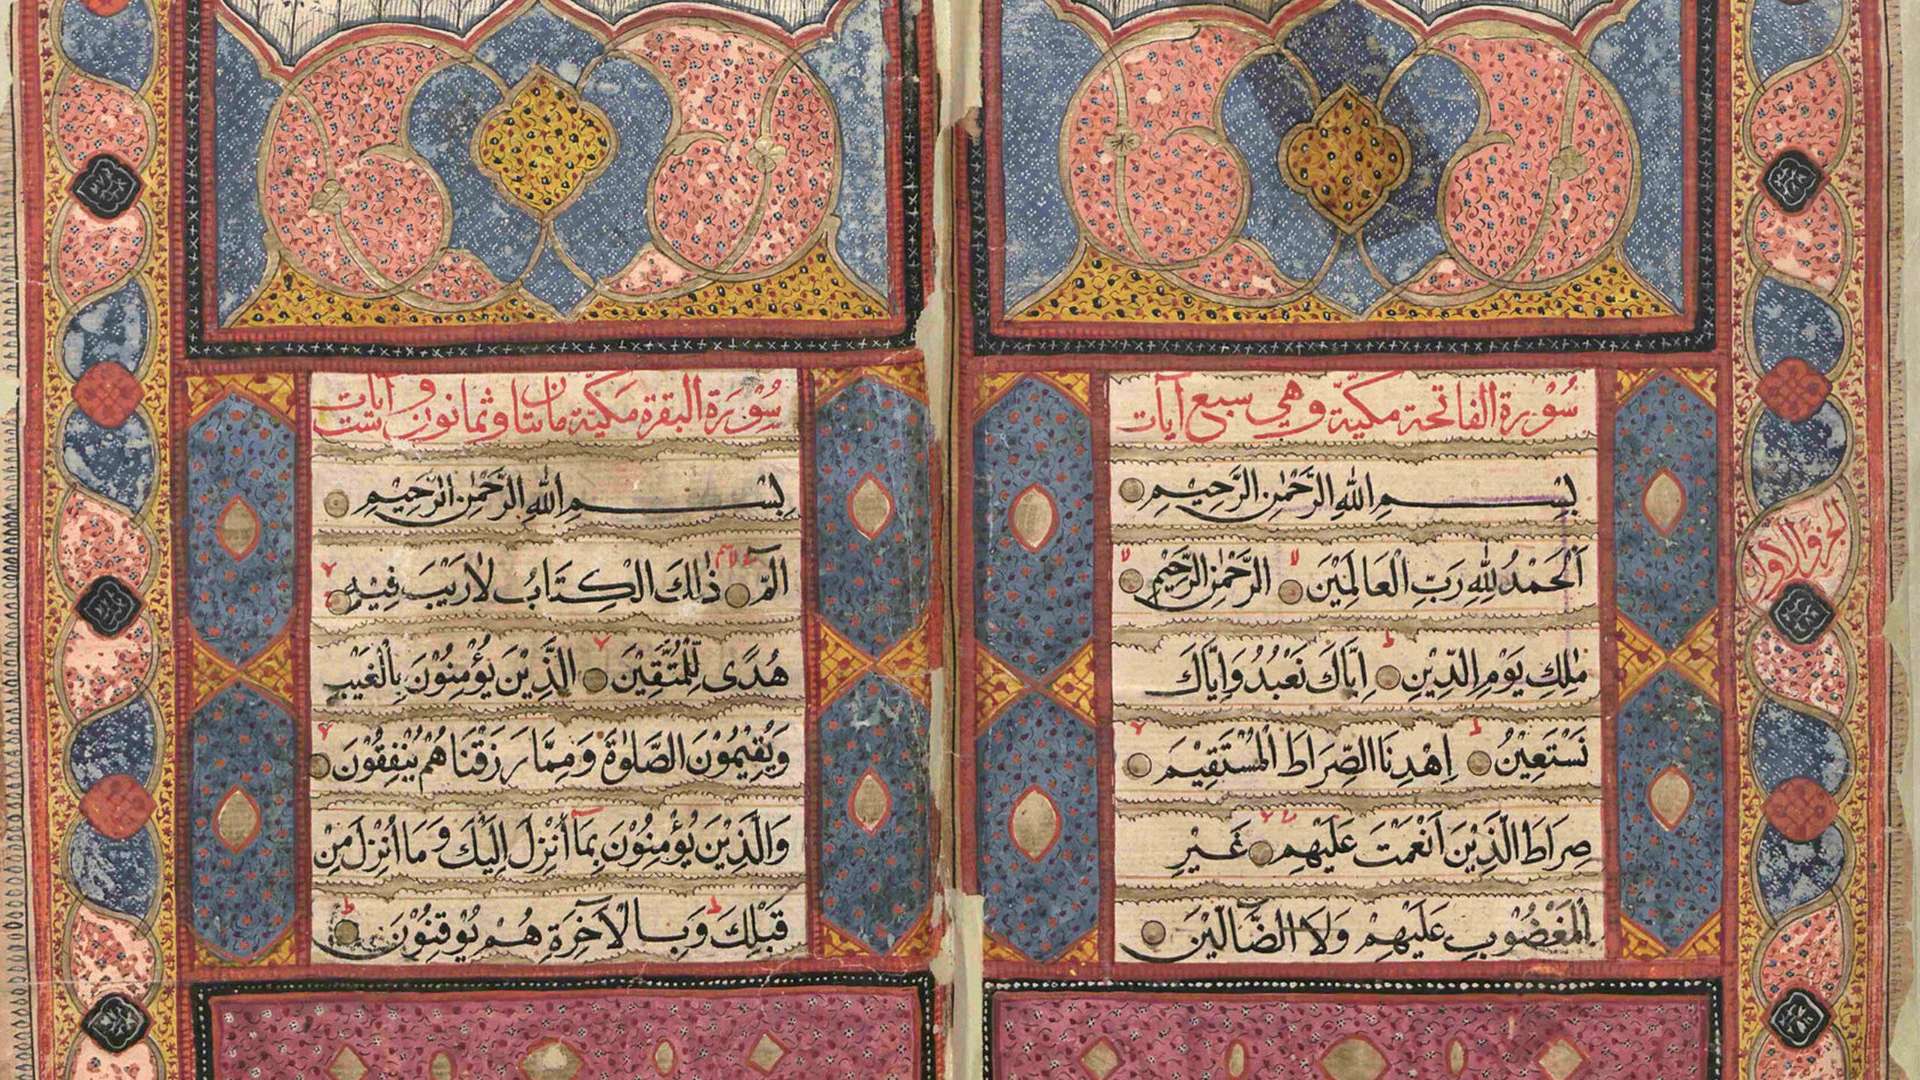 سُوْرَة الفاتحة مكيّة وهي سبع آيات
بِسْمِ اللهِ الرَّحْمٰنِ الرَّحِيْمِ
اَلْحَمْدُ لِلّٰهِ رَبِّ الْعَالَمِيْنَ الرَّحْمٰنِ الرَّحِيْمِ
مٰلِكِ يَوْمِ الدِّيْنِ اِيَّاكَ نَعْبُدُ وَاِيَّاكَ
نَسْتَعِيْنُ اِهْدِنَا الصِّرَاطَ الْمُسْتَقِيْمَ
صِرَاطَ الَّذِيْنَ اَنْعَمْتَ عَلَيْهِمْ غَيْرِ
الْمَغْضُوْبِ عَلَيْهِمْ وَلَا الضَّآلِّيْنَ
الجزؤ الاول
سُوْرَة البقرة مكيّة مائتان وثمانون وست آيات
بِسْمِ اللهِ الرَّحْمٰنِ الرَّحِيْمِ
الٓمّٓ ذٰلِكَ الْكِتَابُ لَارَيْبَ فِيْهِ
هُدًى لِّلْمُتَّقِيْنَ الَّذِيْنَ يُؤْمِنُوْنَ بِالْغَيْبِ
وَيُقِيْمُوْنَ الصَّلٰوةَ وَمِمَّا رَزَقْنَاهُمْ يُنْفِقُوْنَ
وَالَّذِيْنَ يُؤْمِنُوْنَ بِمَآ اُنْزِلَ اِلَيْكَ وَمَا اُنْزِلَ مِنْ
قَبْلِكَ وَبِالْاٰخِرَةِ هُمْ يُوْقِنُوْنَ